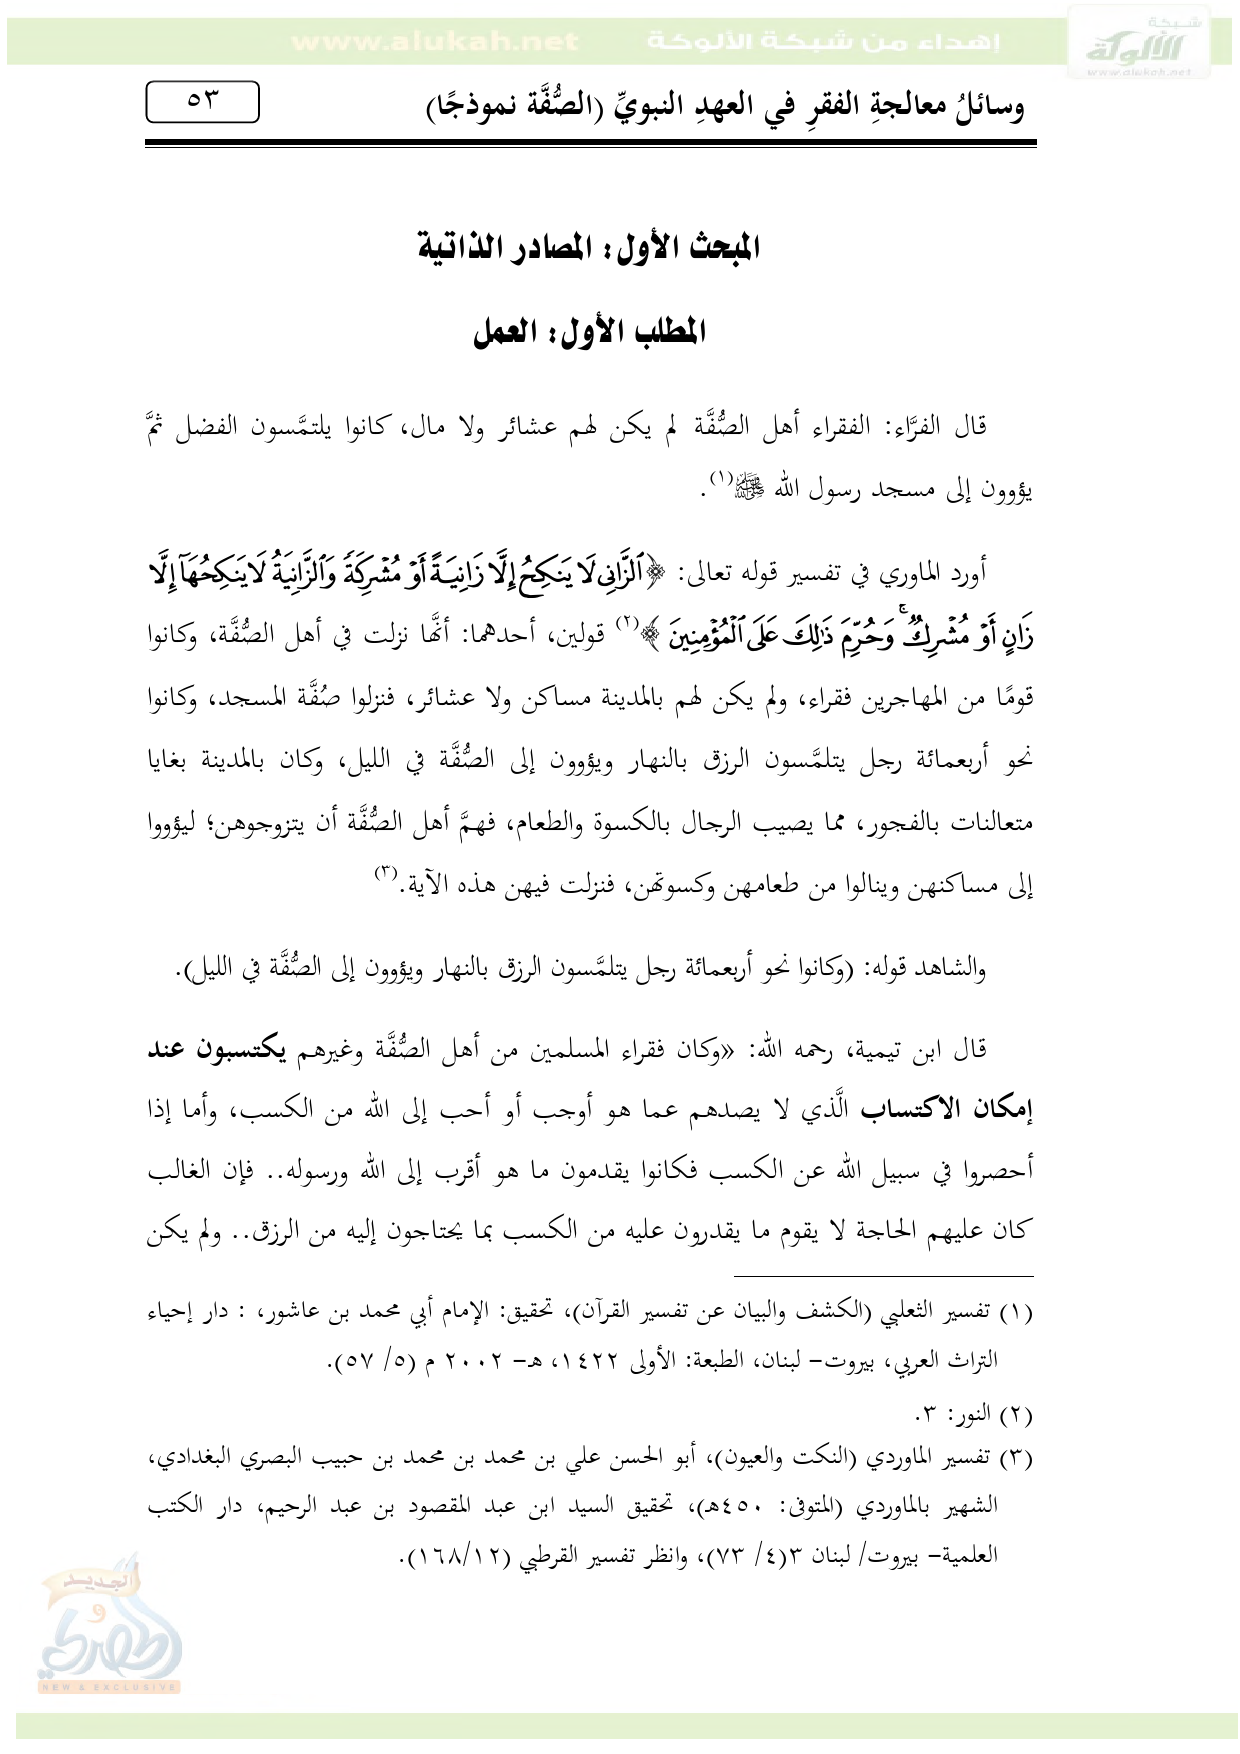 شبكة
الألوكة
www.alukah.net
إهداء من شبكة الألوكة www.alukah.net
وسائلُ معالجةِ الفقرِ في العهدِ النبويِّ (الصُّفَّة نموذجًا) ٥٣
المبحث الأول: المصادر الذاتية
المطلب الأول: العمل
قال الفرَّاء: الفقراء أهل الصُّفَّة لم يكن لهم عشائر ولا مال، كانوا يلتمَّسون الفضل ثمَّ
يؤوون إلى مسجد رسول الله ﷺ(١).
أورد الماوري في تفسير قوله تعالى: ﴿ٱلزَّانِي لَا يَنكِحُ إِلَّا زَانِيَةً أَوۡ مُشۡرِكَةٗ وَٱلزَّانِيَةُ لَا يَنكِحُهَآ إِلَّا
زَانٍ أَوۡ مُشۡرِكٞۚ وَحُرِّمَ ذَٰلِكَ عَلَى ٱلۡمُؤۡمِنِينَ﴾(٢) قولين، أحدهما: أنَّها نزلت في أهل الصُّفَّة، وكانوا
قومًا من المهاجرين فقراء، ولم يكن لهم بالمدينة مساكن ولا عشائر، فنزلوا صُفَّة المسجد، وكانوا
نحو أربعمائة رجل يتلمَّسون الرزق بالنهار ويؤوون إلى الصُّفَّة في الليل، وكان بالمدينة بغايا
متعالنات بالفجور، مما يصيب الرجال بالكسوة والطعام، فهمَّ أهل الصُّفَّة أن يتزوجوهن؛ ليؤووا
إلى مساكنهن وينالوا من طعامهن وكسوتهن، فنزلت فيهن هذه الآية.(٣)
والشاهد قوله: (وكانوا نحو أربعمائة رجل يتلمَّسون الرزق بالنهار ويؤوون إلى الصُّفَّة في الليل).
قال ابن تيمية، رحمه الله: «وكان فقراء المسلمين من أهل الصُّفَّة وغيرهم يكتسبون عند
إمكان الاكتساب الَّذي لا يصدهم عما هو أوجب أو أحب إلى الله من الكسب، وأما إذا
أحصروا في سبيل الله عن الكسب فكانوا يقدمون ما هو أقرب إلى الله ورسوله.. فإن الغالب
كان عليهم الحاجة لا يقوم ما يقدرون عليه من الكسب بما يحتاجون إليه من الرزق.. ولم يكن
(١) تفسير الثعلبي (الكشف والبيان عن تفسير القرآن)، تحقيق: الإمام أبي محمد بن عاشور، : دار إحياء
التراث العربي، بيروت– لبنان، الطبعة: الأولى ١٤٢٢، هـ– ٢٠٠٢ م (٥/ ٥٧).
(٢) النور: ٣.
(٣) تفسير الماوردي (النكت والعيون)، أبو الحسن علي بن محمد بن محمد بن حبيب البصري البغدادي،
الشهير بالماوردي (المتوفى: ٤٥٠هـ)، تحقيق السيد ابن عبد المقصود بن عبد الرحيم، دار الكتب
العلمية– بيروت/ لبنان ٣(٤/ ٧٣)، وانظر تفسير القرطبي (١٦٨/١٢).
الجديد
و
الحصري
NEW & EXCLUSIVE